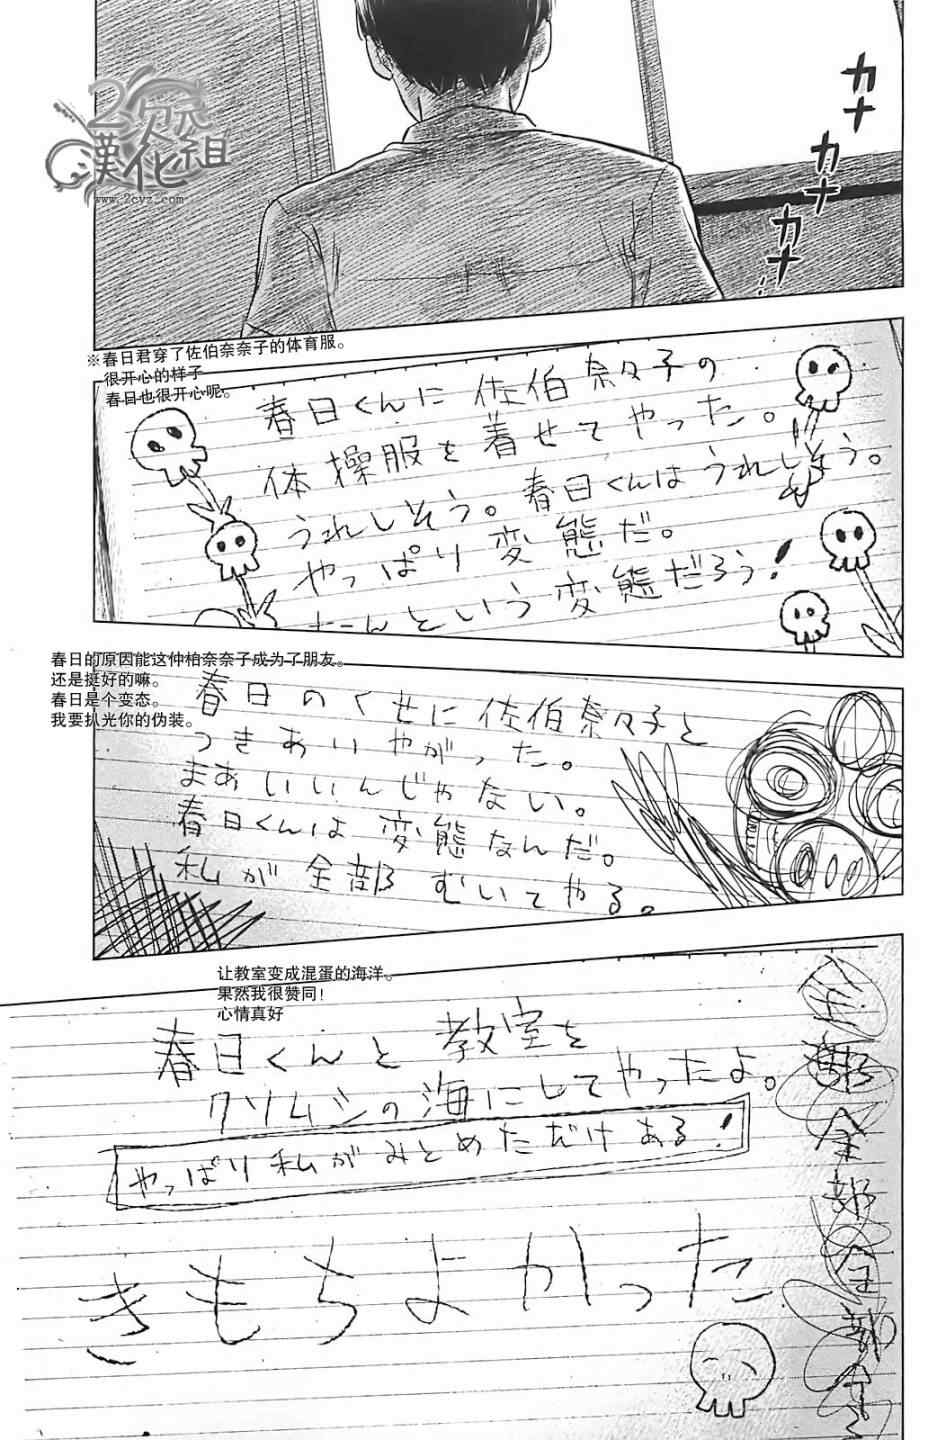 カナ
カナ
カナ…
2次元
漢化組
www.2cyz.com
※春日君穿了佐伯奈奈子的体育服。
很开心的样子
春日也很开心呢。
春日くんに佐伯奈々子の
体操服を着せてやった。
うれしそう。春日くんはうれしそう。
やっぱり変態だ。
なんという変態だろう!
春日的原因能这仲柏奈奈子成为了朋友。
还是挺好的嘛。
春日是个变态。
我要扒光你的伪装。
春日のくせに佐伯奈々子と
つきあいやがった。
まあいいんじゃない。
春日くんは変態なんだ。
私が全部むいてやる。
让教室变成混蛋的海洋。
果然我很赞同!
心情真好
春日くんと教室を
クソムシの海にしてやったよ。
やっぱり私がみとめただけある!
きもちよかった
全部全部全部全